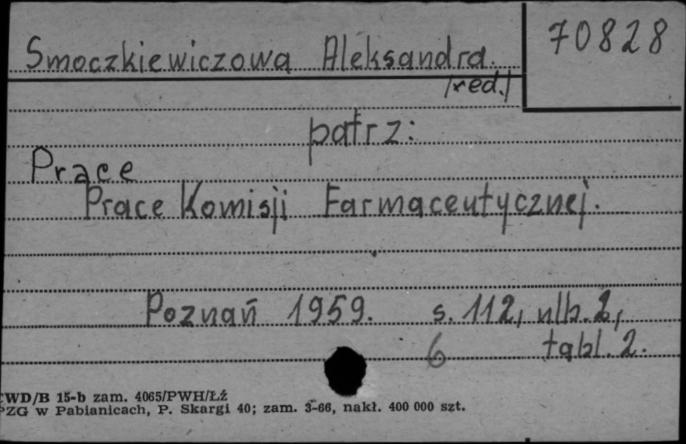 70828
Smoczkiewiczową Aleksandra.
/red./
patrz:
Prace
Prace Komisji Farmaceutycznej.
Poznań 1959. s. 112, nlb. 2,
6 tabl. 2.
WD/B 15-b zam. 4065/PWH/Łź
PZG w Pabianicach, P. Skargi 40; zam. 3-66, nakł. 400 000 szt.